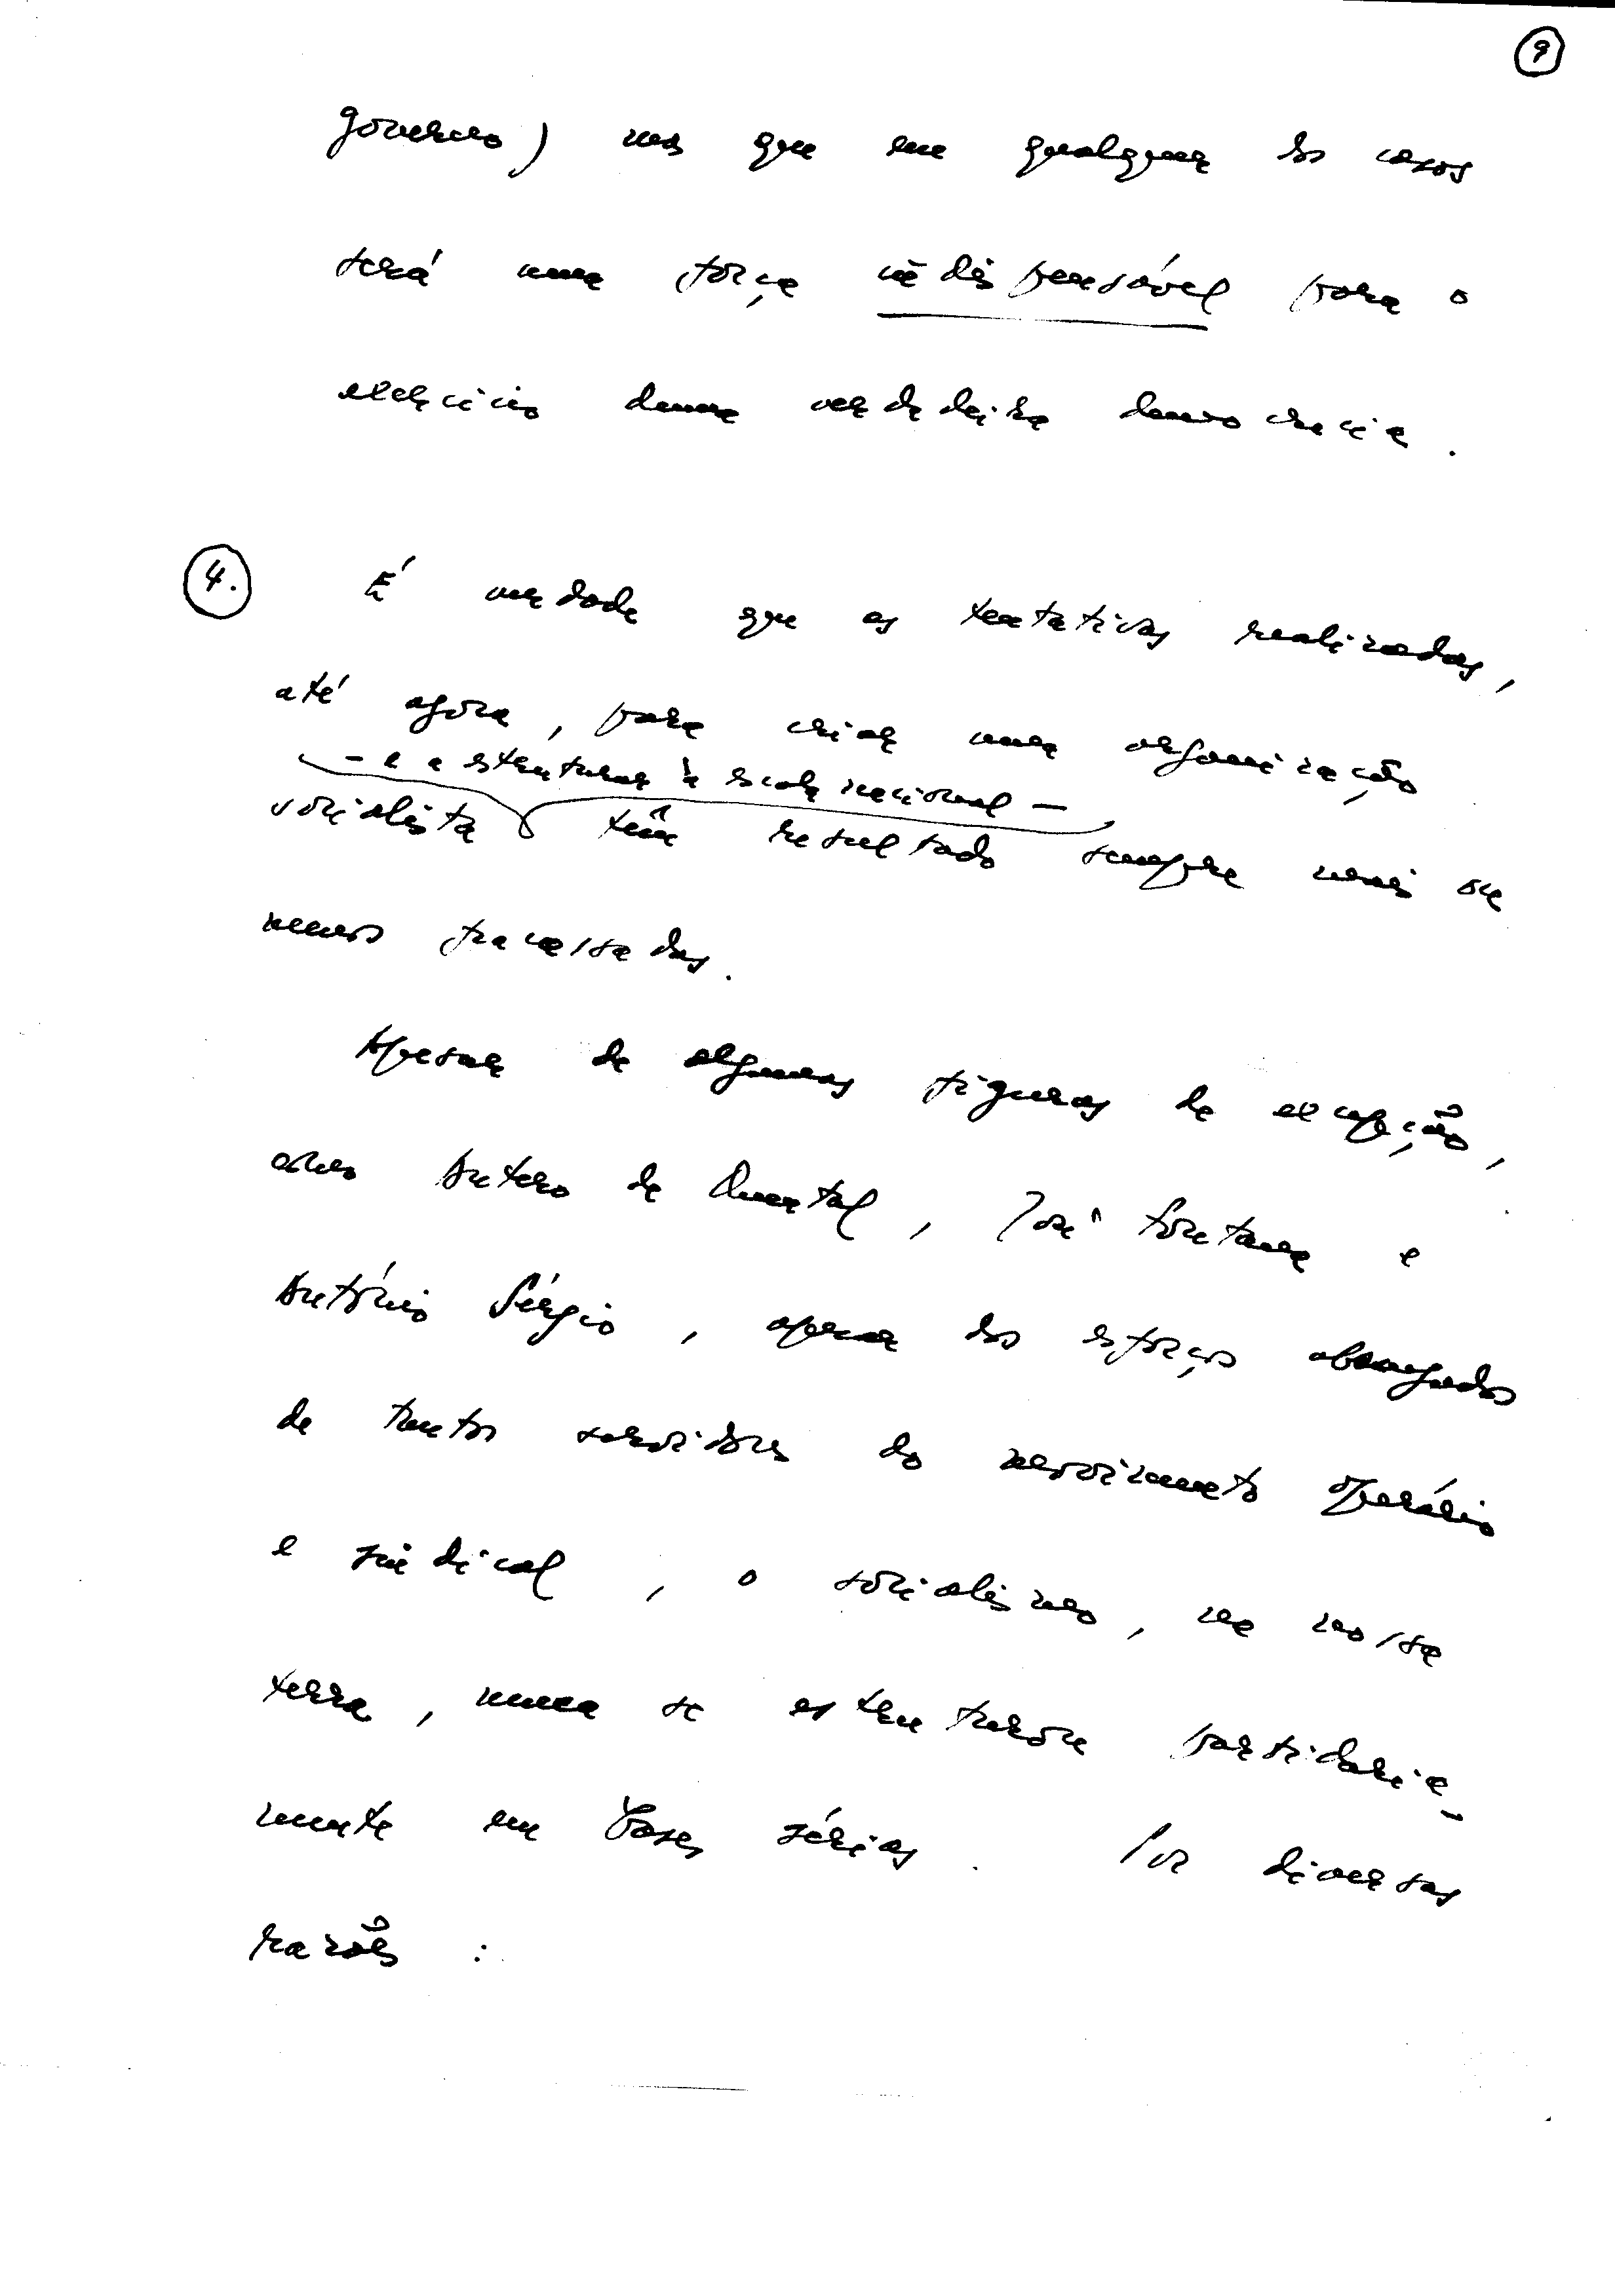 9
governo) mas que em qualquer dos casos
será uma força indispensável para o
exercício duma verdadeira democracia.
4. É verdade que as tentativas realizadas,
até agora, para criar uma organização
– e a estruturar à escala nacional –
socialista têm resultado sempre mais ou
menos fracassadas.
Apesar de algumas figuras de excepção,
como Antero de Quental, José Fontana e
António Sérgio, apesar dos esforços abnegados
de tantos servidores do movimento operário
e sindical, o socialismo, na nossa
terra, nunca se estruturou partidaria-
mente em bases sérias. Por diversas
razões :